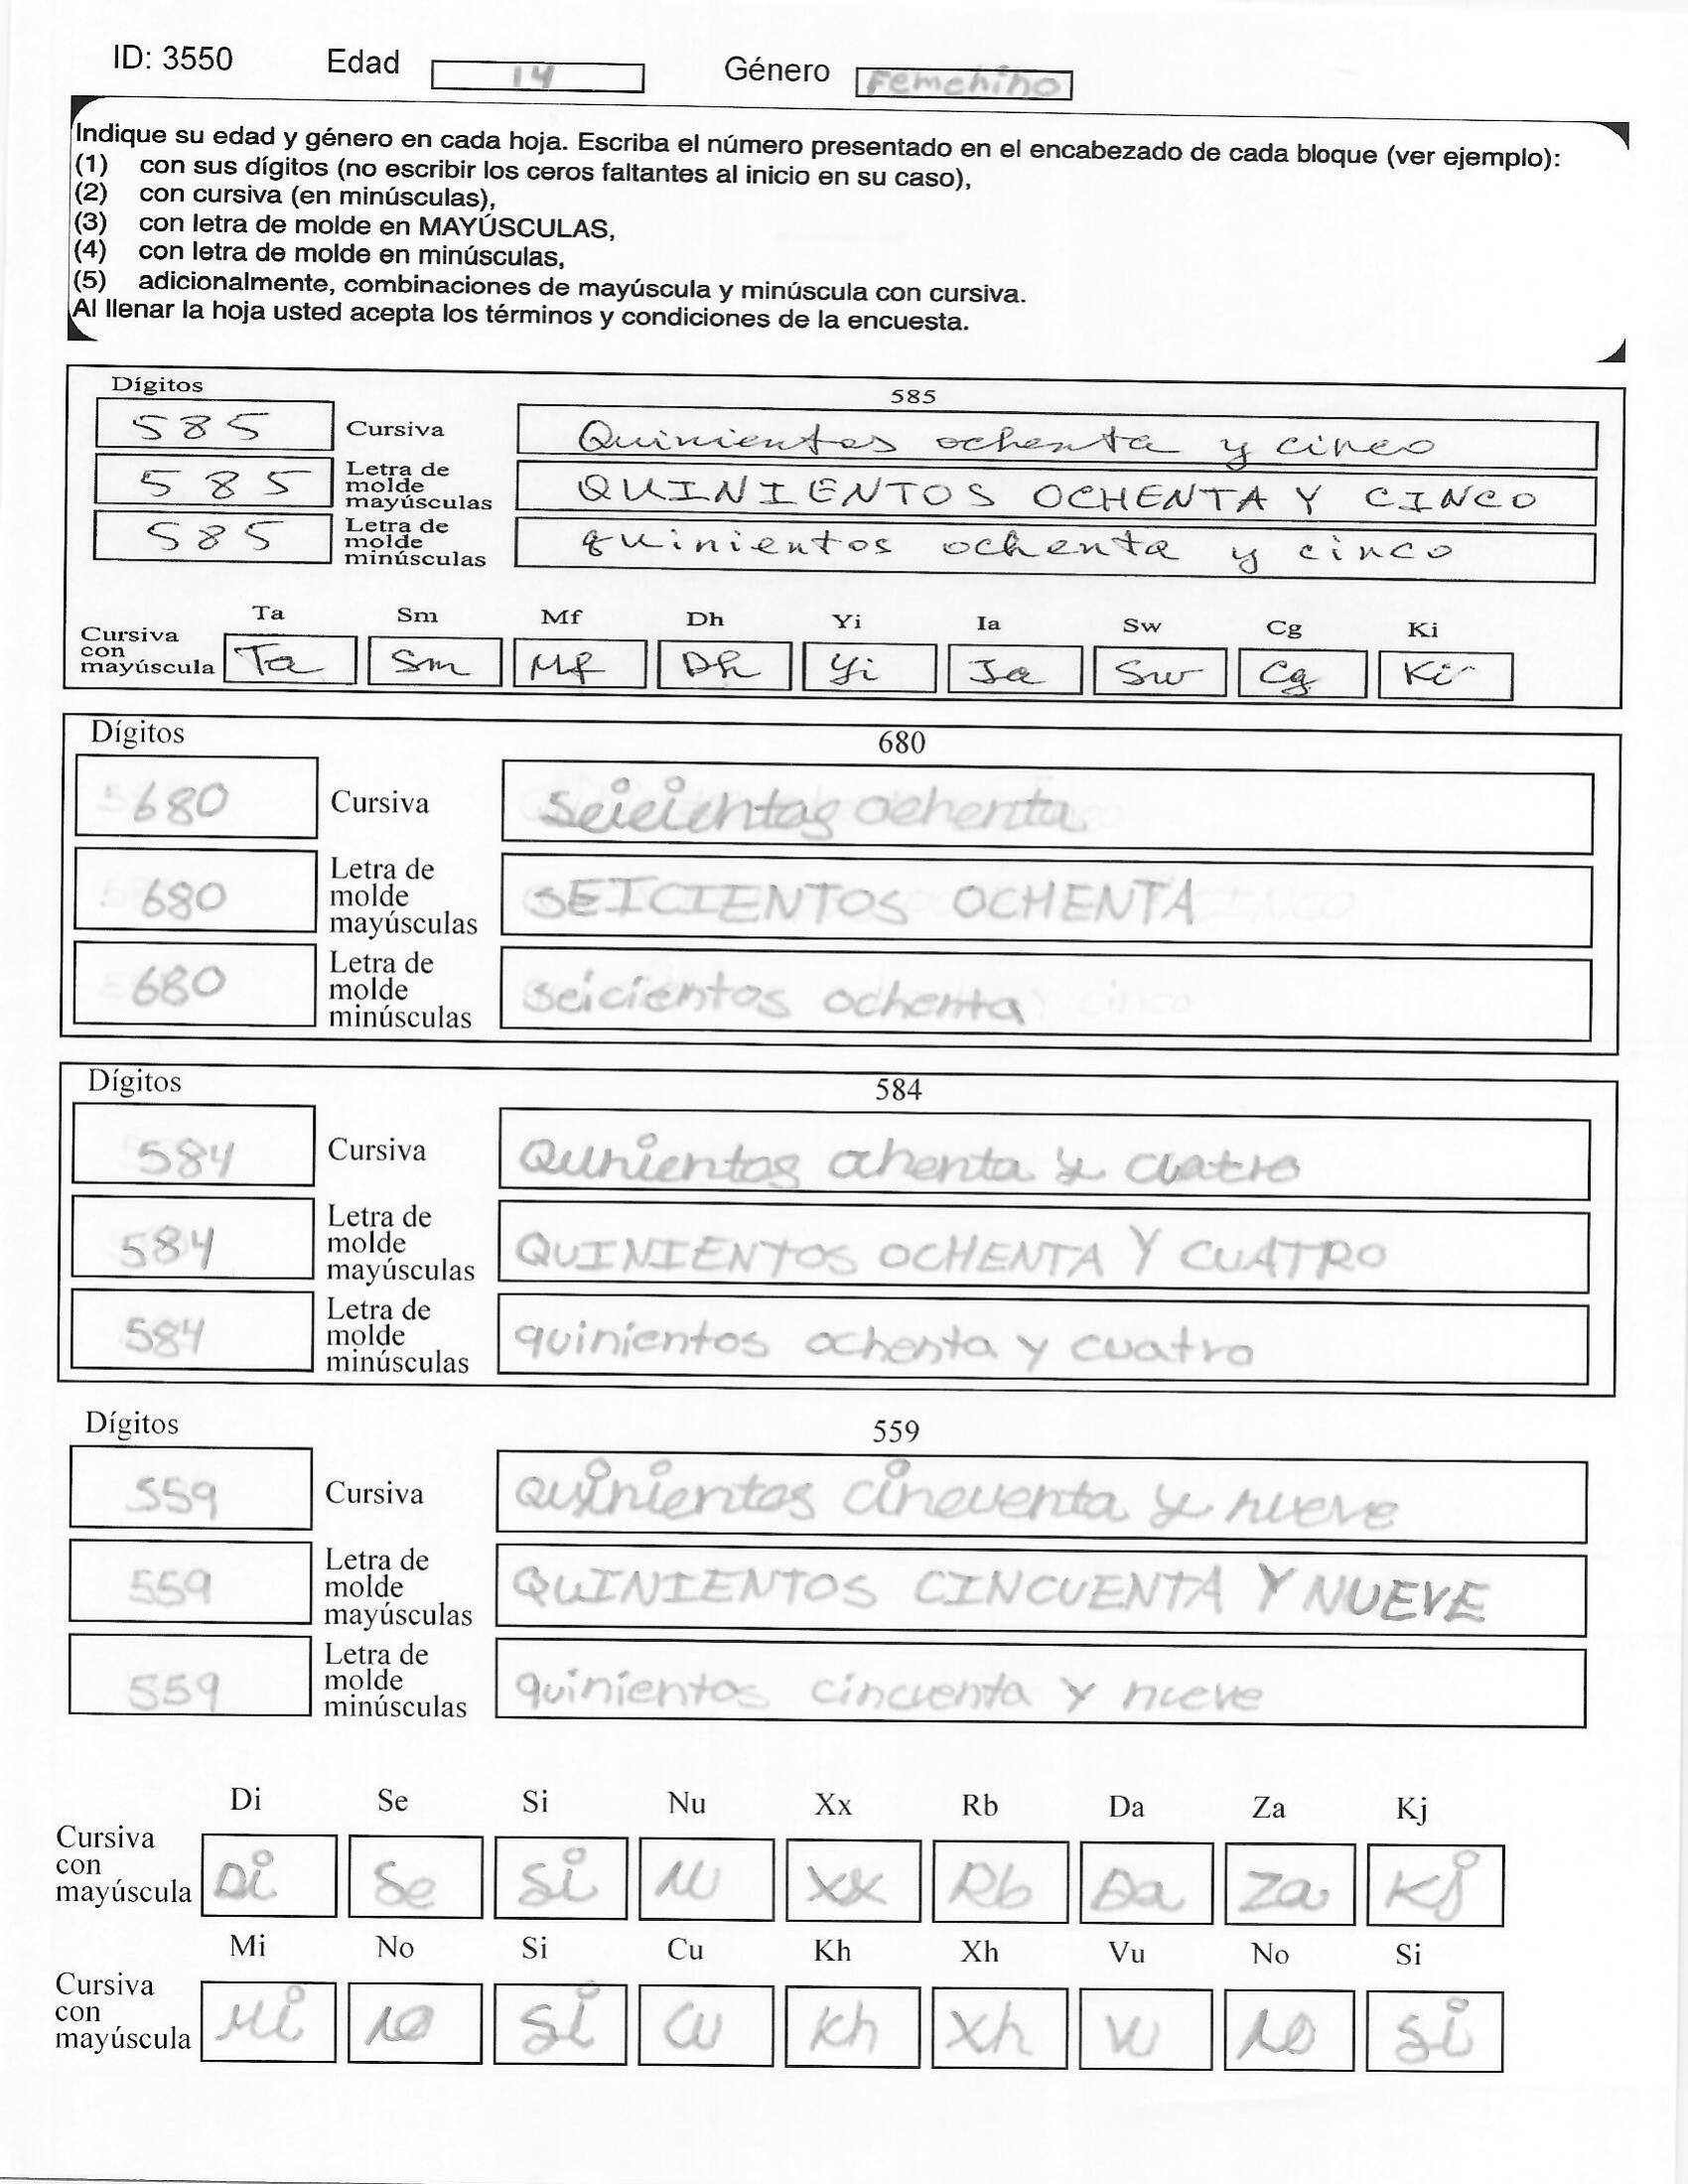 ID: 3550 Edad 14 Género Femenino
Indique su edad y género en cada hoja. Escriba el número presentado en el encabezado de cada bloque (ver ejemplo):
(1) con sus dígitos (no escribir los ceros faltantes al inicio en su caso),
(2) con cursiva (en minúsculas),
(3) con letra de molde en MAYÚSCULAS,
(4) con letra de molde en minúsculas,
(5) adicionalmente, combinaciones de mayúscula y minúscula con cursiva.
Al llenar la hoja usted acepta los términos y condiciones de la encuesta.
Dígitos 585
585 Cursiva Quinientos ochenta y cinco
585 Letra de molde mayúsculas QUINIENTOS OCHENTA Y CINCO
585 Letra de molde minúsculas quinientos ochenta y cinco
Ta Sm Mf Dh Yi Ia Sw Cg Ki
Cursiva con mayúscula Ta Sm Mf Dh Yi Ia Sw Cg Ki
Dígitos 680
680 Cursiva Seicientos ochenta
680 Letra de molde mayúsculas SEICIENTOS OCHENTA
680 Letra de molde minúsculas seicientos ochenta
Dígitos 584
584 Cursiva Qunientos ohenta y cuatro
584 Letra de molde mayúsculas QUINIENTOS OCHENTA Y CUATRO
584 Letra de molde minúsculas quinientos ochenta y cuatro
Dígitos 559
559 Cursiva Quinientos cincuenta y nueve
559 Letra de molde mayúsculas QUINIENTOS CINCUENTA Y NUEVE
559 Letra de molde minúsculas quinientos cincuenta y nueve
Di Se Si Nu Xx Rb Da Za Kj
Cursiva con mayúscula Di Se Si Nu Xx Rb Da Za Kj
Mi No Si Cu Kh Xh Vu No Si
Cursiva con mayúscula Mi No Si Cu Kh Xh Vu No Si